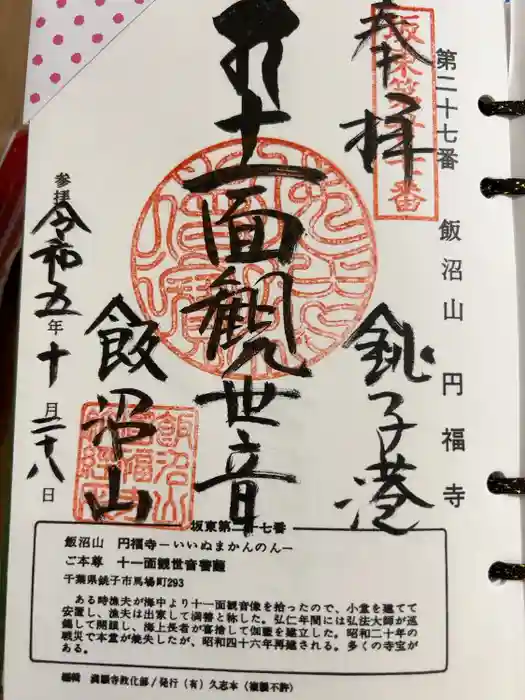 第二十七番 飯沼山 円福寺
奉拝
銚子港
十一面観世音
飯沼山
参拝
令和五年十月二十八日
坂東第二十七番
飯沼山 円福寺—いいぬまかんのん—
ご本尊 十一面観世音菩薩
千葉県銚子市馬場町293
ある時漁夫が海中より十一面観音像を拾ったので、小堂を建てて
安置し、漁夫は出家して
と称した。弘仁年間には弘法大師が巡
錫して開眼し、海上長者が喜捨して伽藍を建立した。昭和二十年の
戦災で本堂が焼失したが、昭和四十六年再建される。多くの寺宝が
ある。
編輯 満願寺教化部/発行(有)久志本(複製不許)